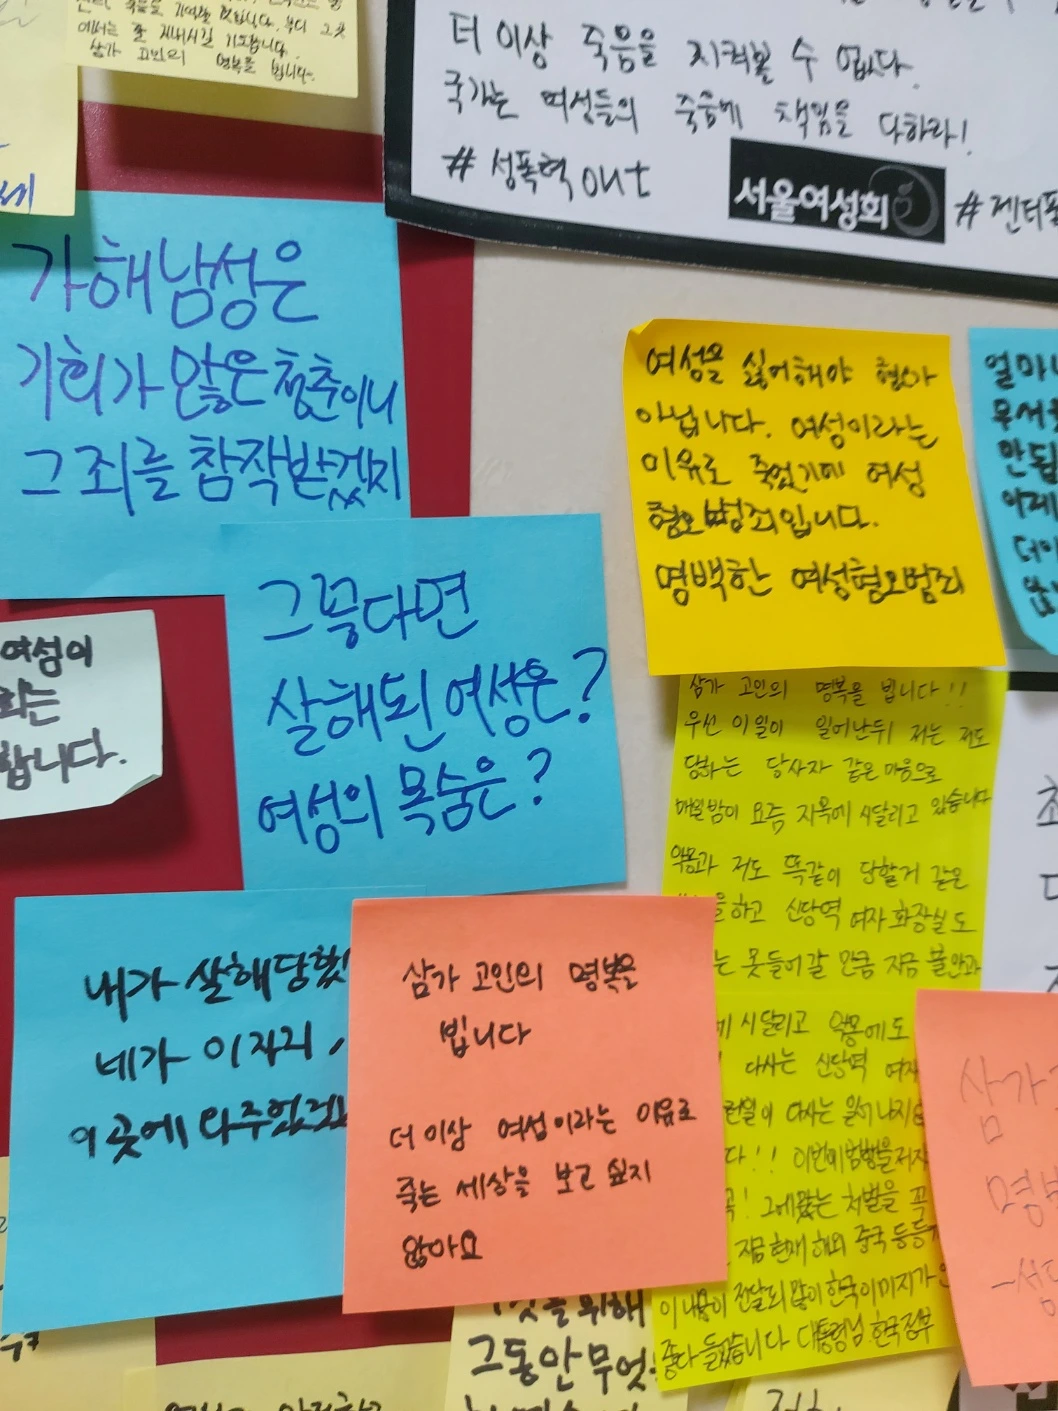 죽음을 기억할 것입니다. 부디 그곳
에서는 잘 지내시길 기도합니다.
삼가 고인의 명복을 빕니다.
더 이상 죽음을 지켜볼 수 없다.
국가는 여성들의 죽음에 책임을 다하라!
# 성폭력 out
서울여성회
# 젠더폭
가해남성은
기회가 많은 청춘이니
그 죄를 참작받겠지
그렇다면
살해된 여성은?
여성의 목숨은?
여성을 싫어해야 혐오가
아닙니다. 여성이라는
이유로 죽었기에 여성
혐오범죄입니다.
명백한 여성혐오범죄
얼마나
무서웠
만듭
이제
더이
않
여성이
회는
합니다.
삼가 고인의 명복을 빕니다!!
우선 이 일이 일어난뒤 저는 저도
당하는 당사자 같은 마음으로
매일밤이 요즘 지옥에 시달리고 있습니다
악몽과 저도 똑같이 당할거 같은
을하고 신당역 여자 화장실도
는 못 들어갈 만큼 지금 불안과
에 시달리고 악몽에도
다시는 신당역 여자
런일이 다시는 일어나지
다!! 이번에 범행을 저지
꼭! 그에맞는 처벌을 꼭
지금 현재 해외 중국 등등
이 내용이 전달되 많이 한국이미지가
좋다 들었습니다 대통령님 한국정부
내가 살해당했
네가 이자리,
이 곳에 와주었겠
삼가 고인의 명복을
빕니다
더 이상 여성이라는 이유로
죽는 세상을 보고 싶지
않아요
삼가
명복
을위해
그동안 무엇